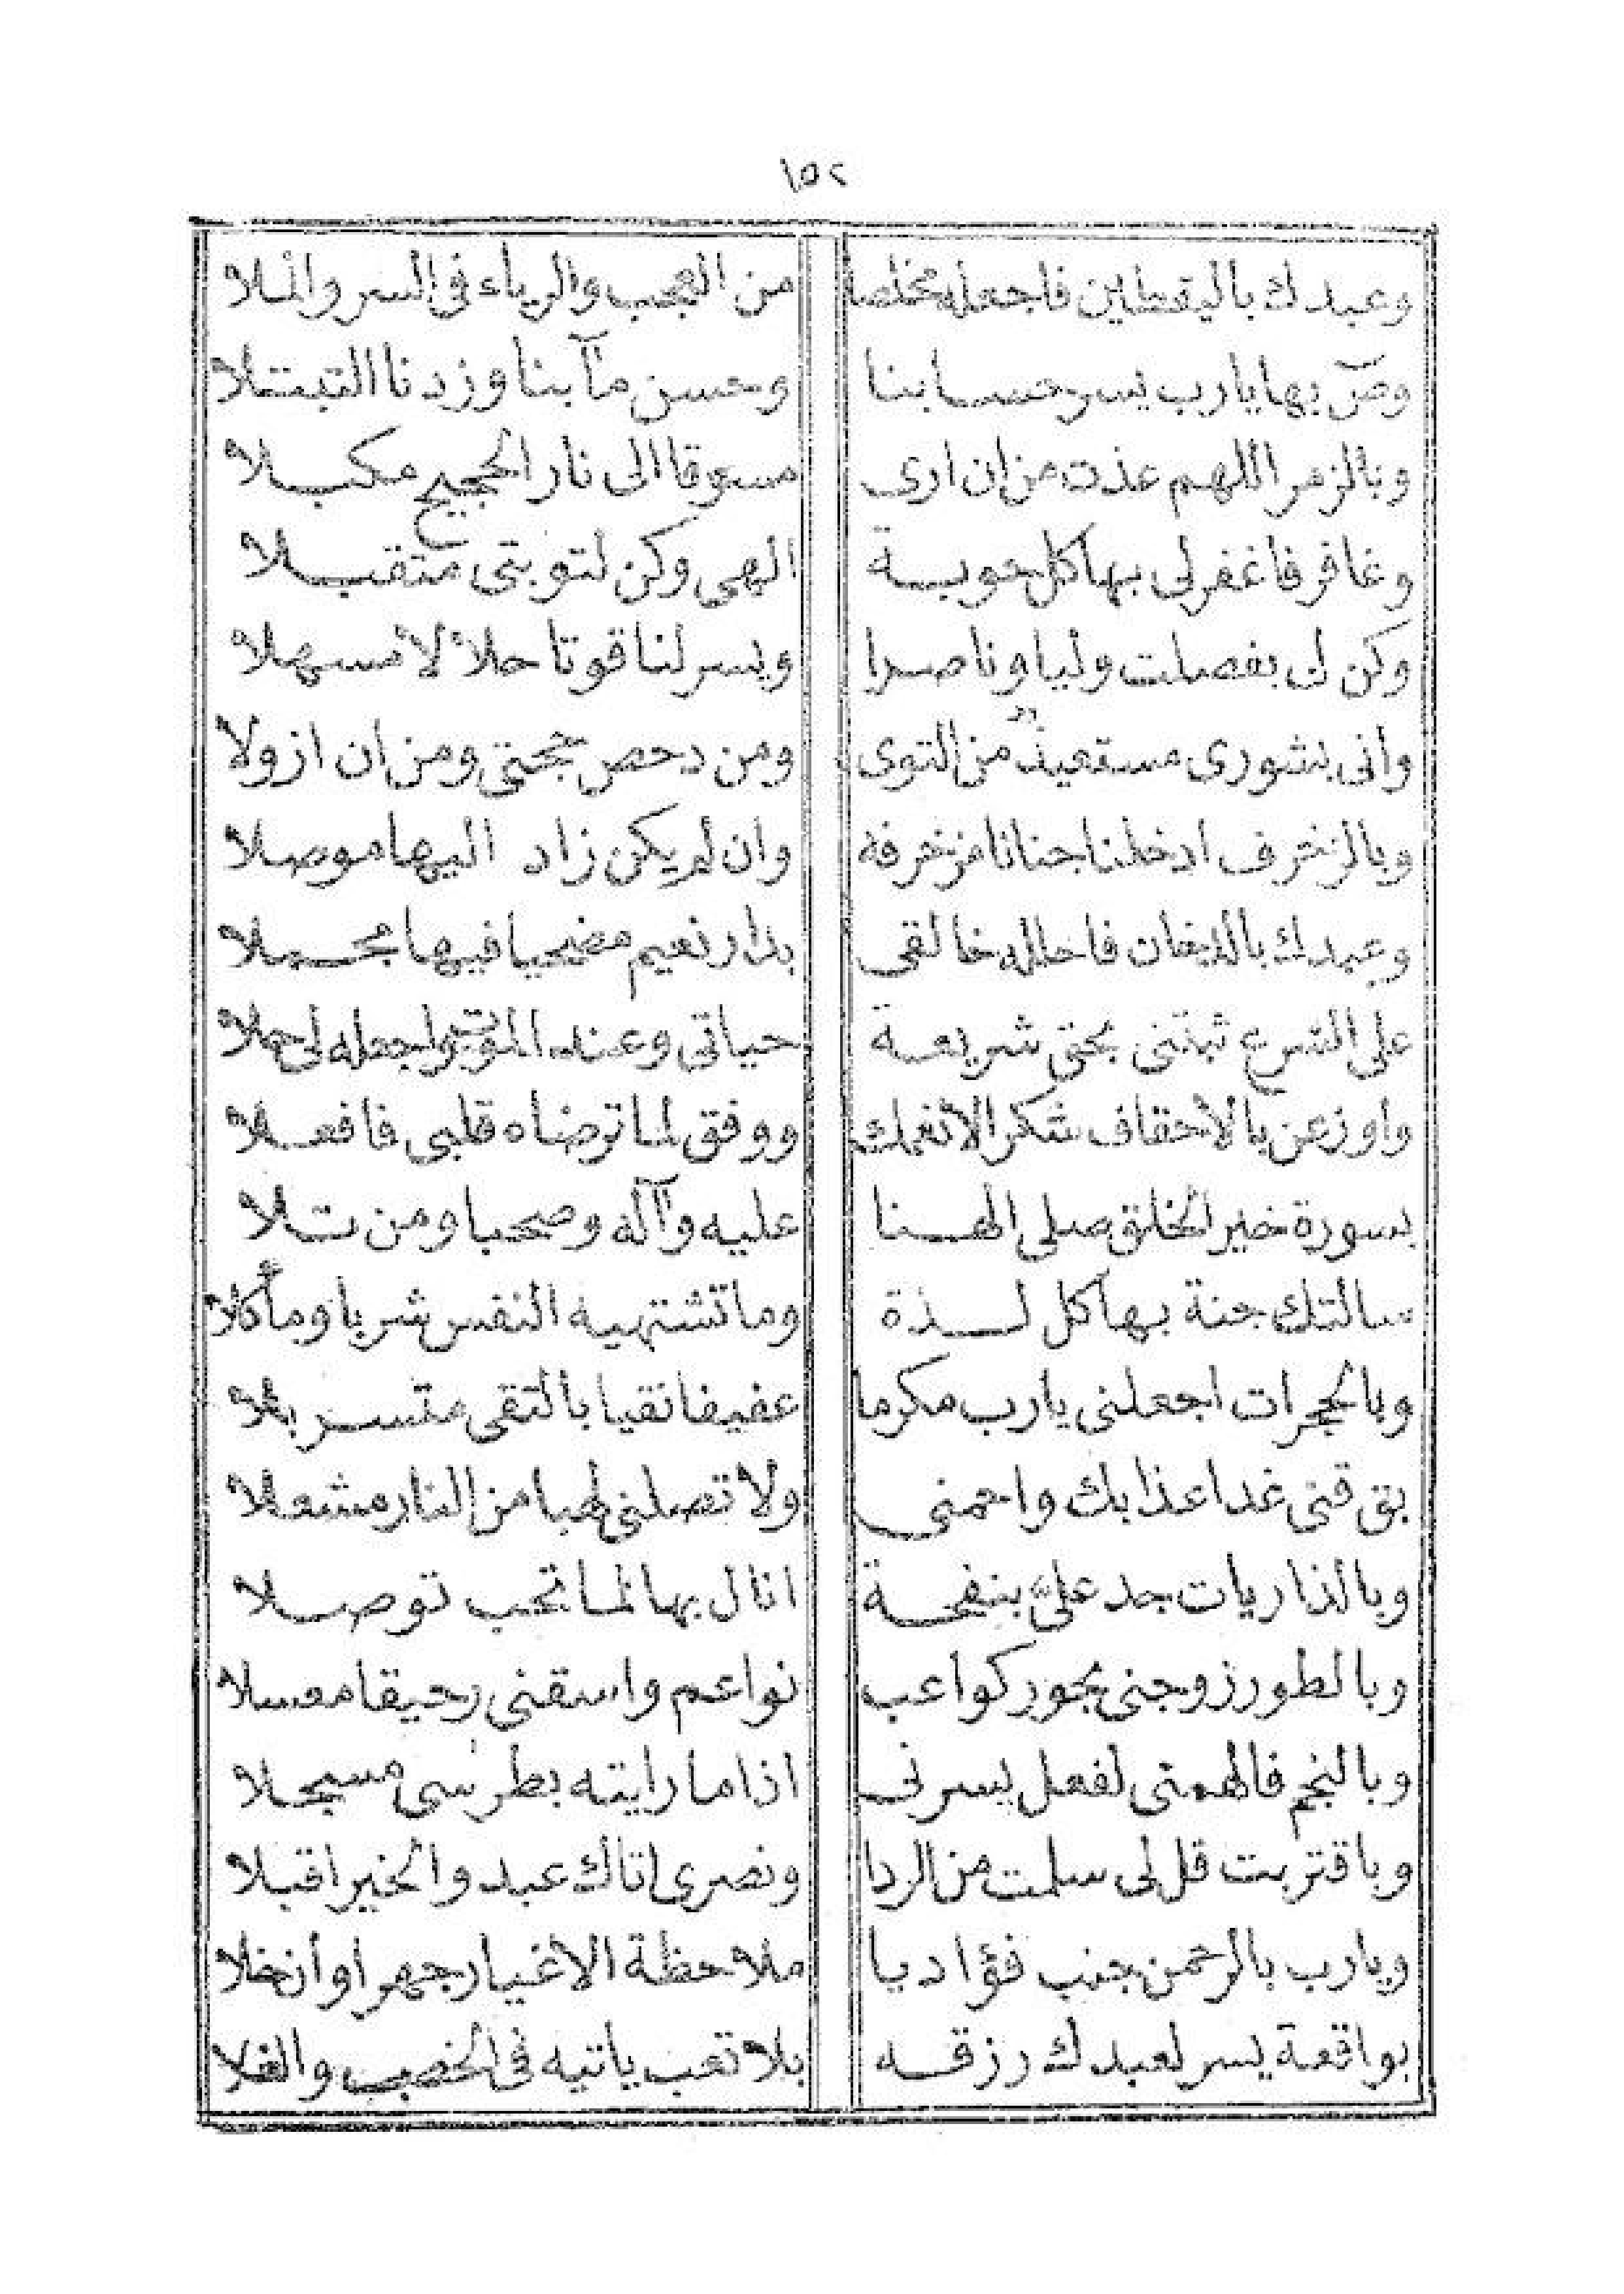 ١٥٢
وعبدك باليقطين فاجعله مخلصا من العجب والرياء فى السر والملا
وص بها يارب يسر حسابنا وحسن مآبنا وزدنا التبتلا
وبالزمر اللهم عذت من ان ارى مسوقا الى نار الجحيم مكبلا
وغافر فاغفر لى بها كل حوبة الهى وكن لتوبتى متقبلا
وكن لى بفصلت وليا وناصرا ويسر لنا قوتا حلالا مسهلا
وانى بشورى مستعيذ من التوى ومن دحض حجتى ومن ان ازولا
وبالزخرف ادخلنا جنانا مزخرفة وان لم يكن زاد اليها موصلا
وعبدك بالدخان فاحلله خالقى بدار نعيم مضحيا فيها مجملا
على الشرع ثبتنى بحق شريعة حياتى وعند الموت واجعله لى حلا
واوزعن بالأحقاف شكرا لأنعمك ووفق لما ترضاه قلبى فافعلا
بسورة خير الخلق صلى الهنا عليه وآله وصحبا ومن تلا
سالتك جنة بها كل لذة وما تشتهيه النفس شربا ومأكلا
وبالحجرات اجعلنى يارب مكرما عفيفا نقيا بالتقى متسربلا
بق قنى غدا عذابك واحمنى ولا تصلنى لهبا من النار مشعلا
وبالذاريات جد علىّ بنفحة انال بها لما تحب توصلا
وبالطور زوجنى بحور كواعب نواعم واسقنى رحيقا معسلا
وبالنجم فالهمنى لفعل يسرنى اذا ما رايته بطرسى مسجلا
وباقتربت قل لى سلمت من الردا ونصرى اتاك عبد والخير اقبلا
ويارب بالرحمن جنب فؤاديا ملاحظة الاغيار جهرا وأنخلا
بواقعة يسر لعبدك رزقه بلا تعب ياتيه فى الخصب والغلا